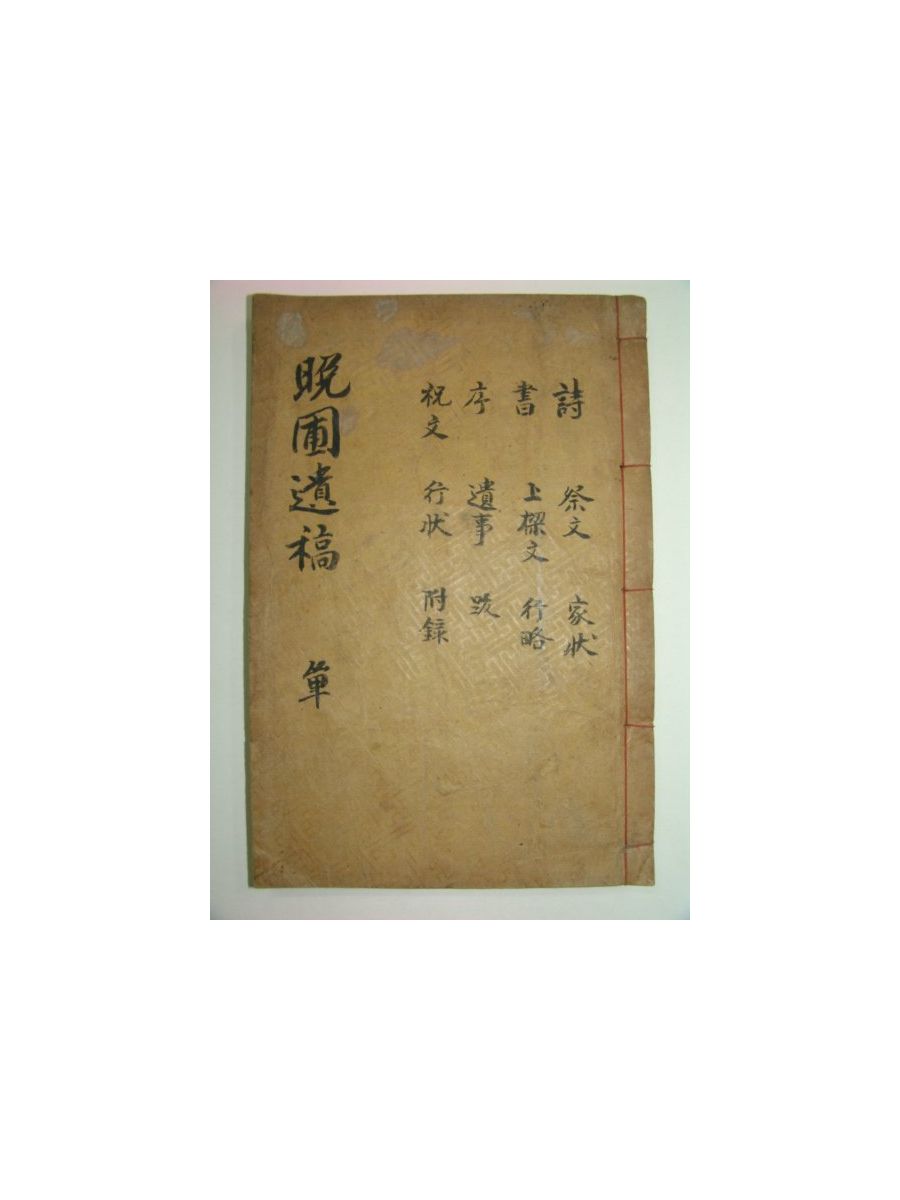 詩 祭文 家状
書 上樑文 行略
序 遺事 跋
祝文 行状 附録
晩圃遺稿 單